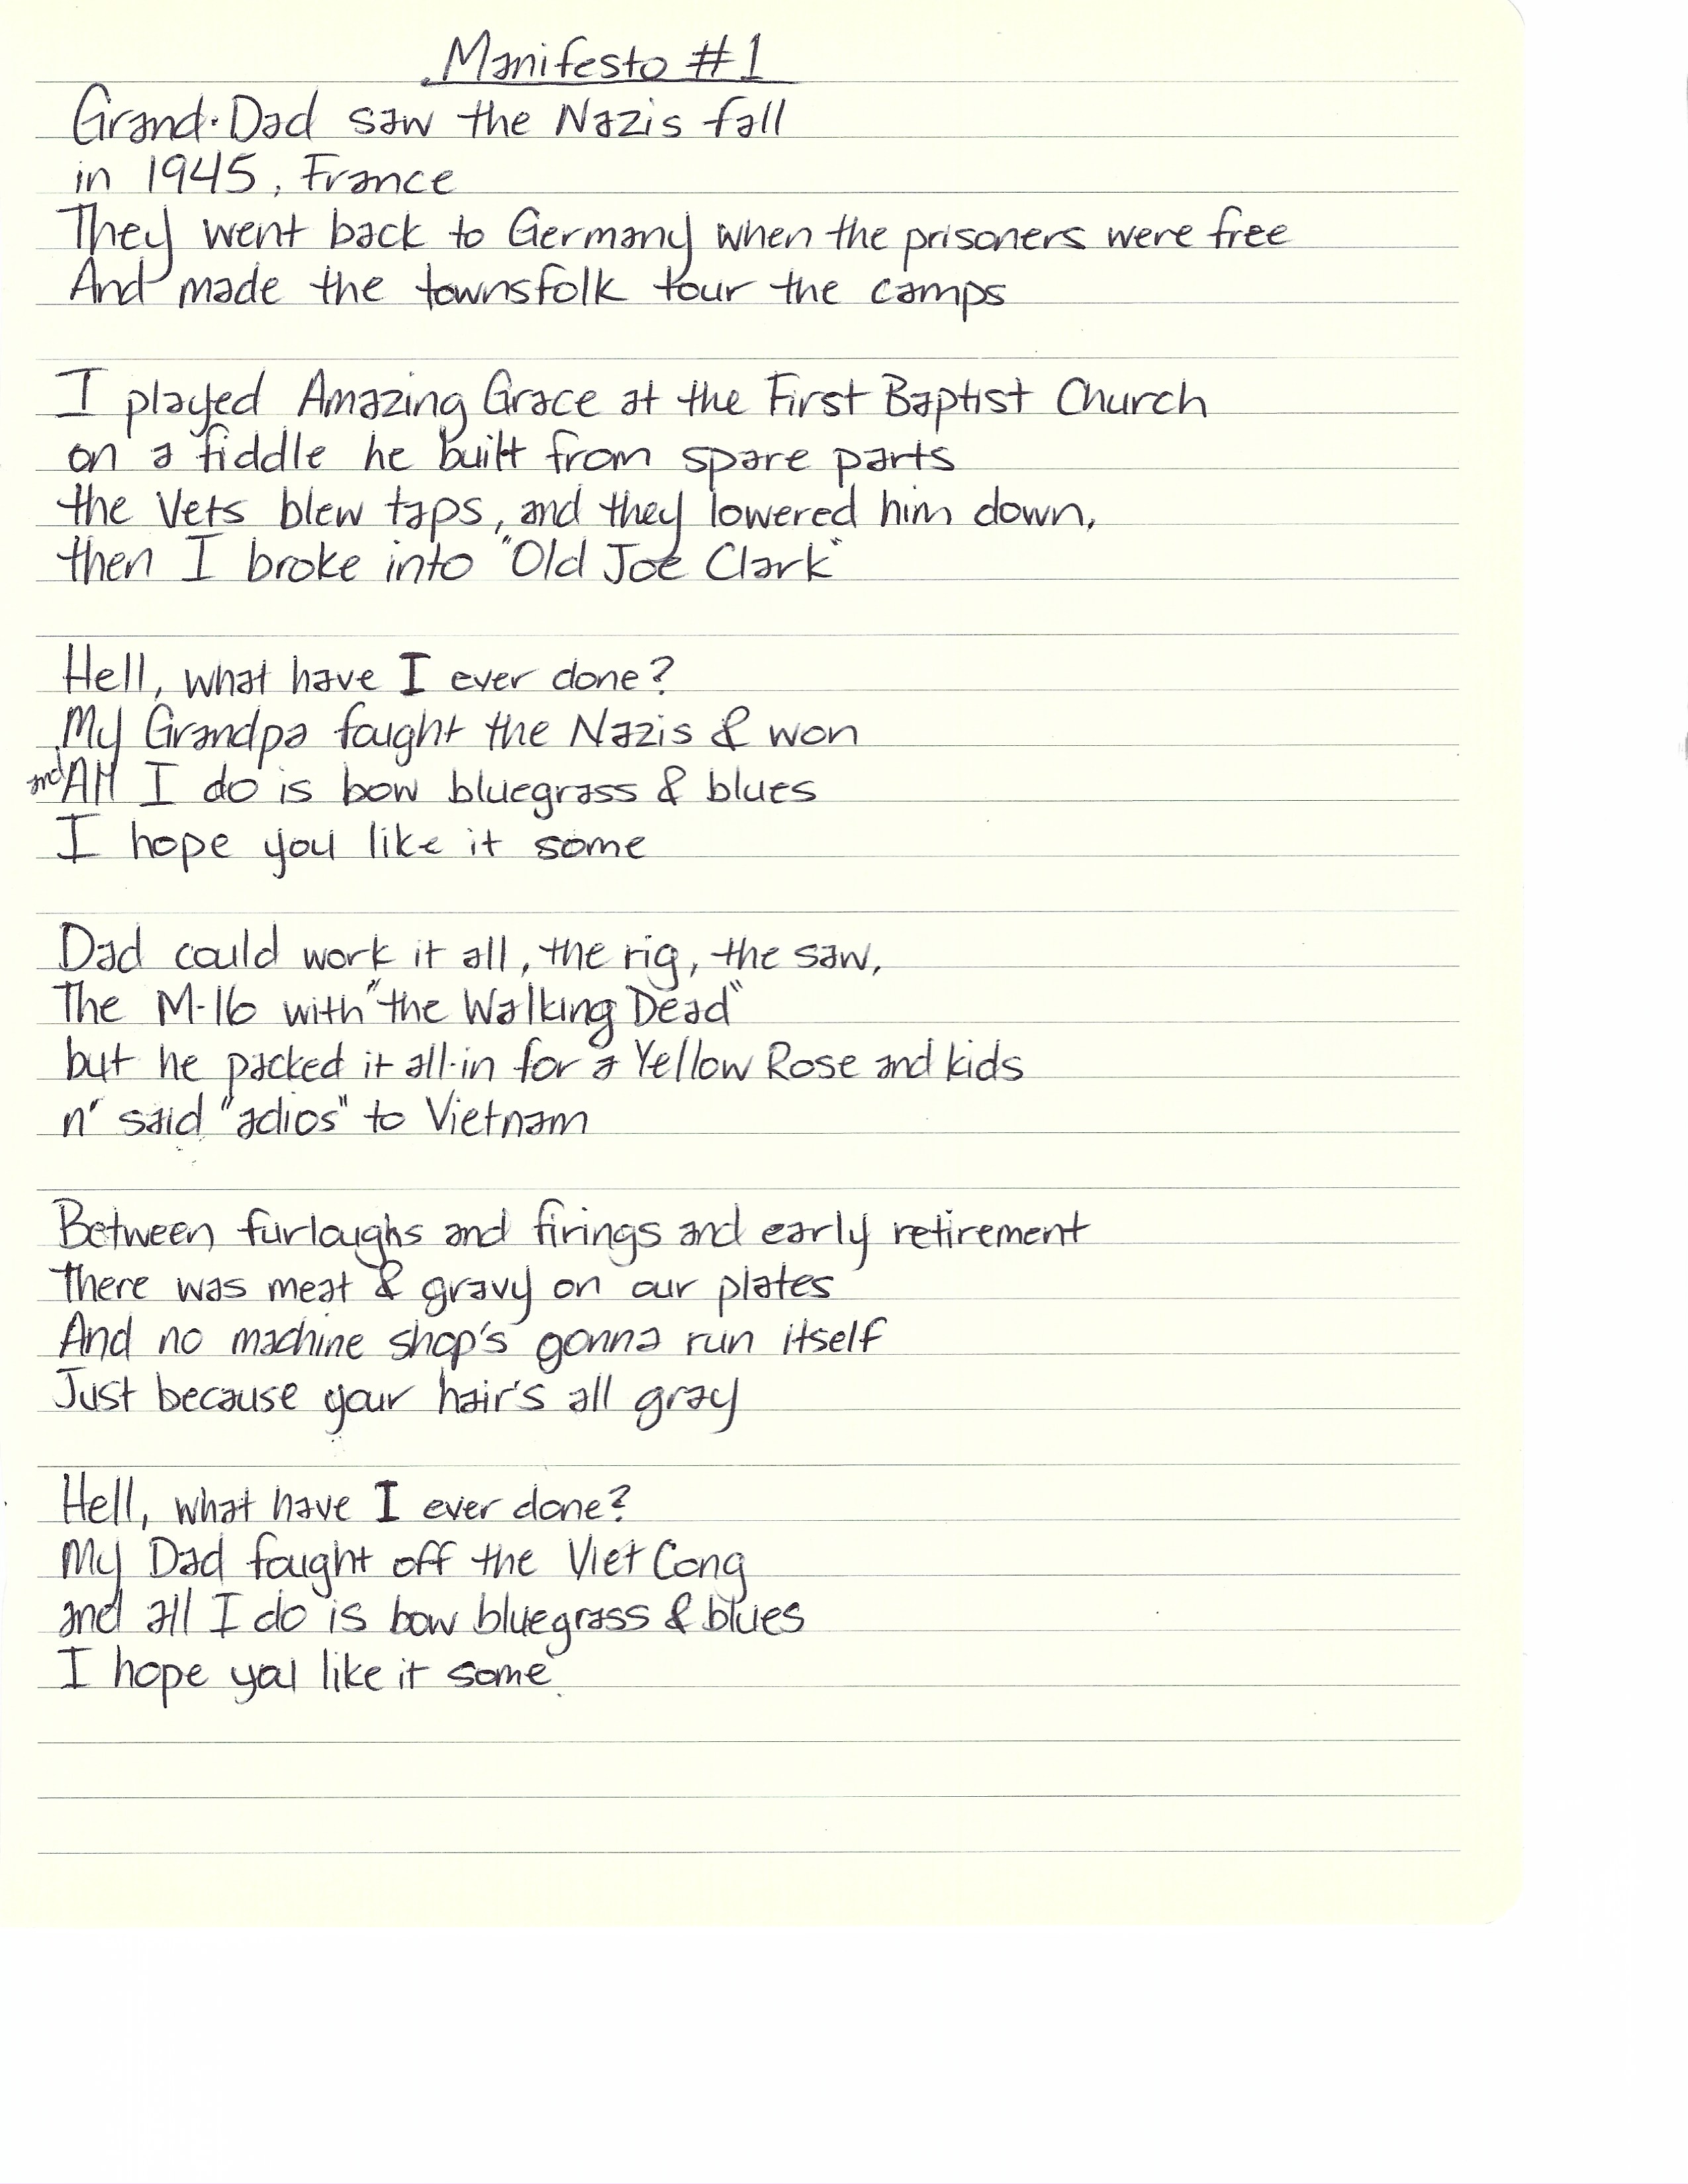 Manifesto #1
Grand-Dad saw the Nazis fall
in 1945, France
They went back to Germany when the prisoners were free
And made the townsfolk tour the camps
I played Amazing Grace at the First Baptist Church
on a fiddle he built from spare parts
the Vets blew taps, and they lowered him down,
then I broke into "Old Joe Clark"
Hell, what have I ever done?
My Grandpa fought the Nazis & won
and All I do is bow bluegrass & blues
I hope you like it some
Dad could work it all, the rig, the saw,
The M-16 with "the Walking Dead"
but he packed it all-in for a Yellow Rose and kids
n' said "adios" to Vietnam
Between furloughs and firings and early retirement
There was meat & gravy on our plates
And no machine shop's gonna run itself
Just because your hair's all gray
Hell, what have I ever done?
My Dad fought off the Viet Cong
and all I do is bow bluegrass & blues
I hope you like it some